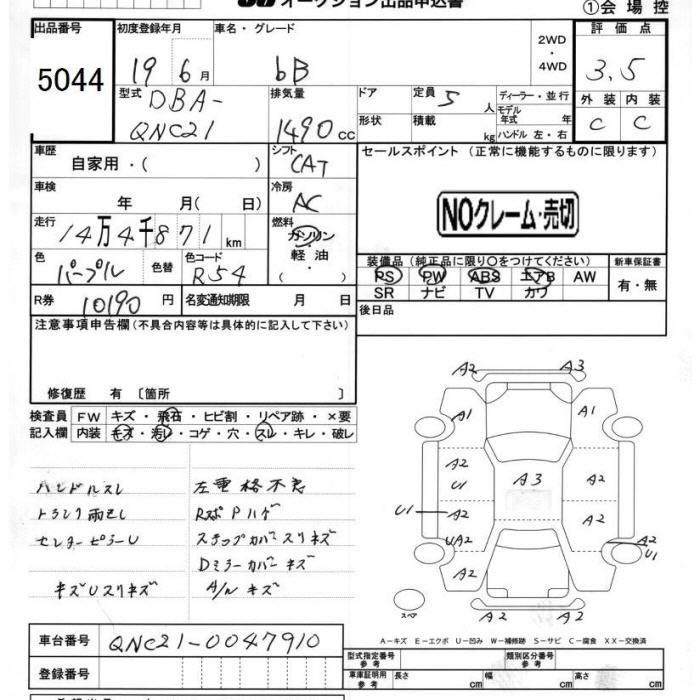 オークション出品申込書
①会場控
出品番号 初度登録年月 車名・グレード 2WD・4WD 評価点
5044 19 6月 bB 3.5
型式 DBA-QNC21 排気量 1490cc ドア 形状 定員 5人 積載 kg ディーラー・並行 モデル年式 年 ハンドル 左・右 外装 内装
C C
車歴 自家用・( ) シフト CAT セールスポイント (正常に機能するものに限ります)
車検 年 月( 日) 冷房 AC
NOクレーム・売切
走行 14万4千871km 燃料 ガソリン 軽油・
色 パープル 色替 色コード R54
装備品(純正品に限り○をつけてください) 新車保証書
PS PW ABS エアB AW 有・無
SR ナビ TV カワ
R券 10190円 名変通知期限 月 日 後日品
注意事項申告欄(不具合内容等は具体的に記入して下さい)
修復歴 有〔箇所 〕
検査員 FW キズ・飛石・ヒビ割・リペア跡・×要
記入欄 内装 キズ・汚レ・コゲ・穴・スレ・キレ・破レ
ハンドルスレ 左電格不良
トランク雨もり
ステップカバースリキズ
センターピラーU
Dミラーカバーキズ
キズUスリキズ A/Nキズ
A2 A3
A1 A1
A2 A2
U1 A3
U1 A2 A2
UA2 A2 U1
A2
スペア A2 A2
A-キズ E-エクボ U-凹み W-補修跡 S-サビ C-腐食 XX-交換済
車台番号 QNC21-0047910
登録番号
型式指定番号 参考 類別区分番号 参考
車庫証明用 参考 長さ cm 幅 cm 高さ cm